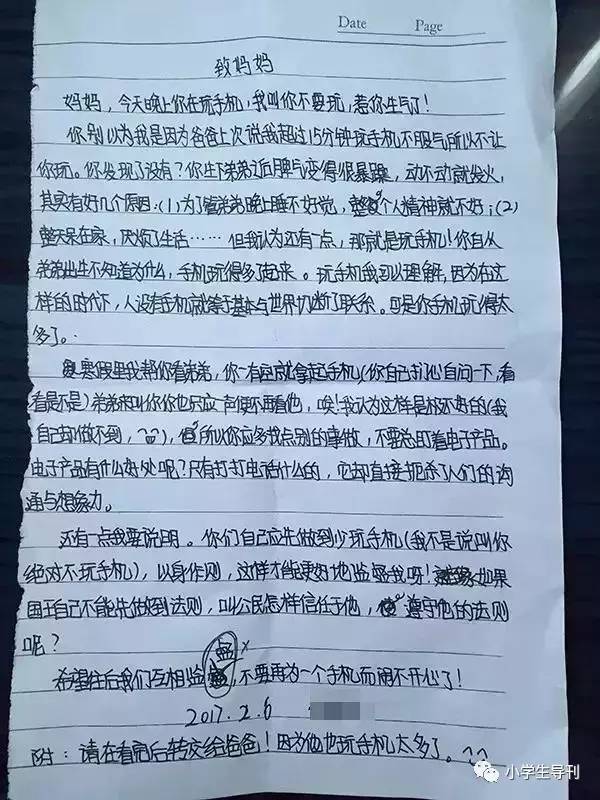 Date Page
致妈妈
妈妈，今天晚上你在玩手机，我叫你不要玩，惹你生气了！
你别以为我是因为爸爸上次说我超过15分钟玩手机不服气所以不让
你玩。你发现了没有？你生下弟弟近脾气变得很暴躁，动不动就发火，
其实有好几个原因：(1)为了管弟弟晚上睡不好觉，整个人精神就不好；(2)
整天呆在家，厌烦了生活……但我认为还有一点，那就是玩手机！你自从
弟弟出生不知道为什么，手机玩得多了起来。玩手机我可以理解，因为在这
样的时代下，人没有手机就等于基本与世界切断了联系。可是你手机玩得太
多了。
寒假里我帮你看弟弟，你一有空就拿起手机(你自己扪心自问一下，看
看是不是)弟弟来叫你你也只应一声便不再看他，唉！我认为这样是极不好的(我
自己却做不到，^_^)，所以你应多找点别的事做，不要总盯着电子产品。
电子产品有什么好处呢？只有打打电话什么的，它却直接扼杀了人们的沟
通与想象力。
还有一点我要说明。你们自己应先做到少玩手机(我不是说叫你
绝对不玩手机)，以身作则，这样才能更好地监督我呀！如果
国王自己不能先做到法则，叫公民怎样信任于他，遵守他的法则
呢？
希望往后我们互相监督，不要再为一个手机而闹不开心了！
2017.2.6
附：请在看完后转交给爸爸！因为他也玩手机太多了。^_^
小学生导刊